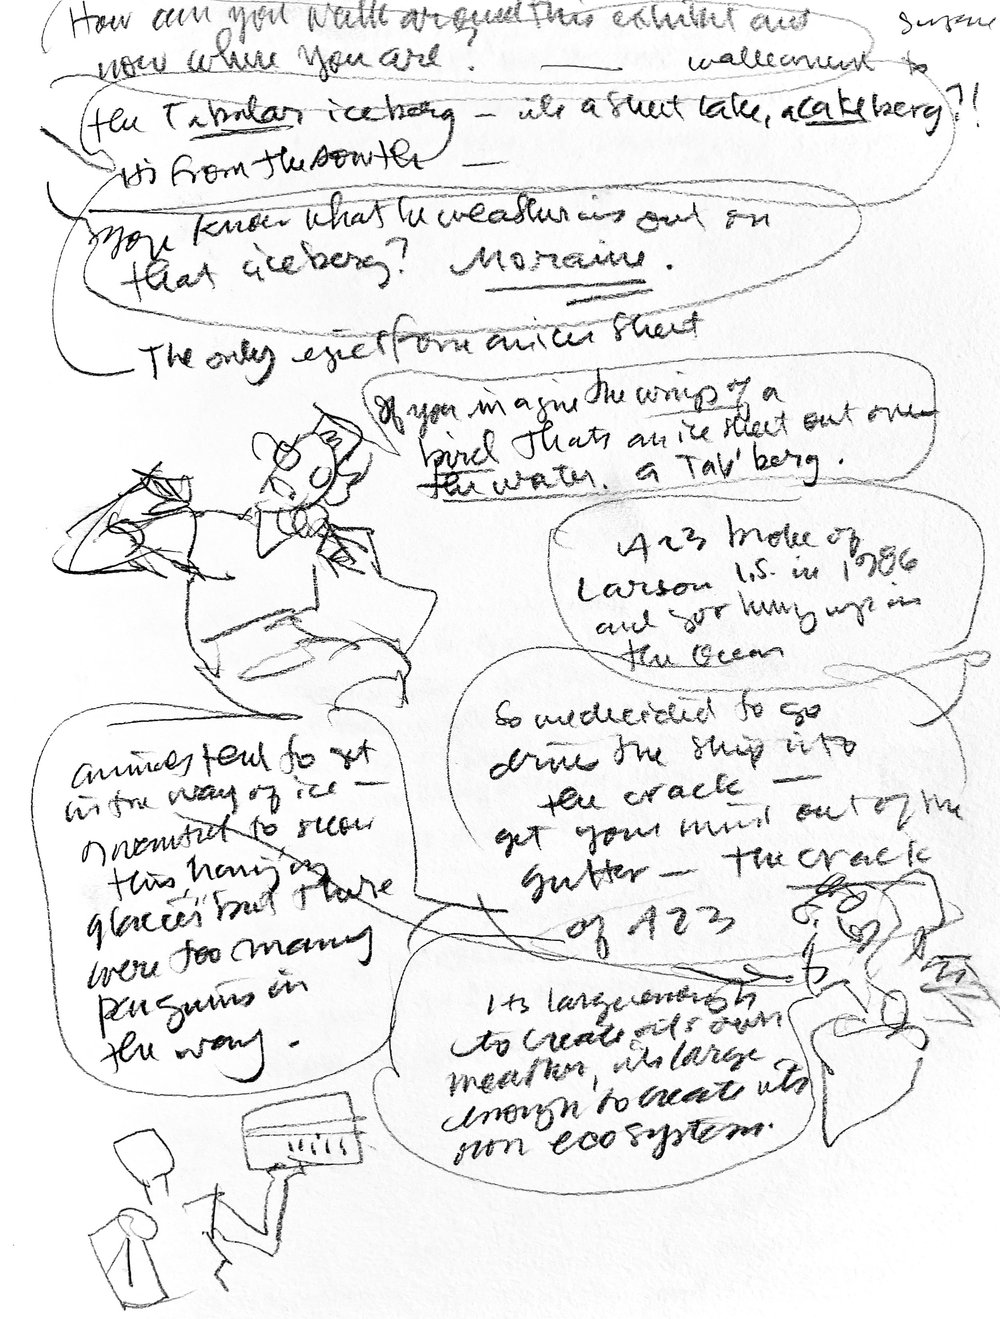 How can you walk around this exhibit and
now where you are? — walk
to
the Tabular iceberg — its a sheet lake, a cake berg?!
its from the south —
you know what the weather is out on
that iceberg? Moraine.
The only
sheet
If you imagine the wings of a
bird thats an ice sheet out over
the water. a Tab'berg.
A23 broke of
Larson I.S. in 1986
and got hung up in
the Ocean
So we decided to go
drive the ship into
the crack —
get your mind out of the
gutter — the crack
of A23
animals tend to get
in the way of ice —
I wanted to show
this hanging
glacier but there
were too many
penguins in
the way.
Its large enough
to create its own
weather, its large
enough to create its
own ecosystem.